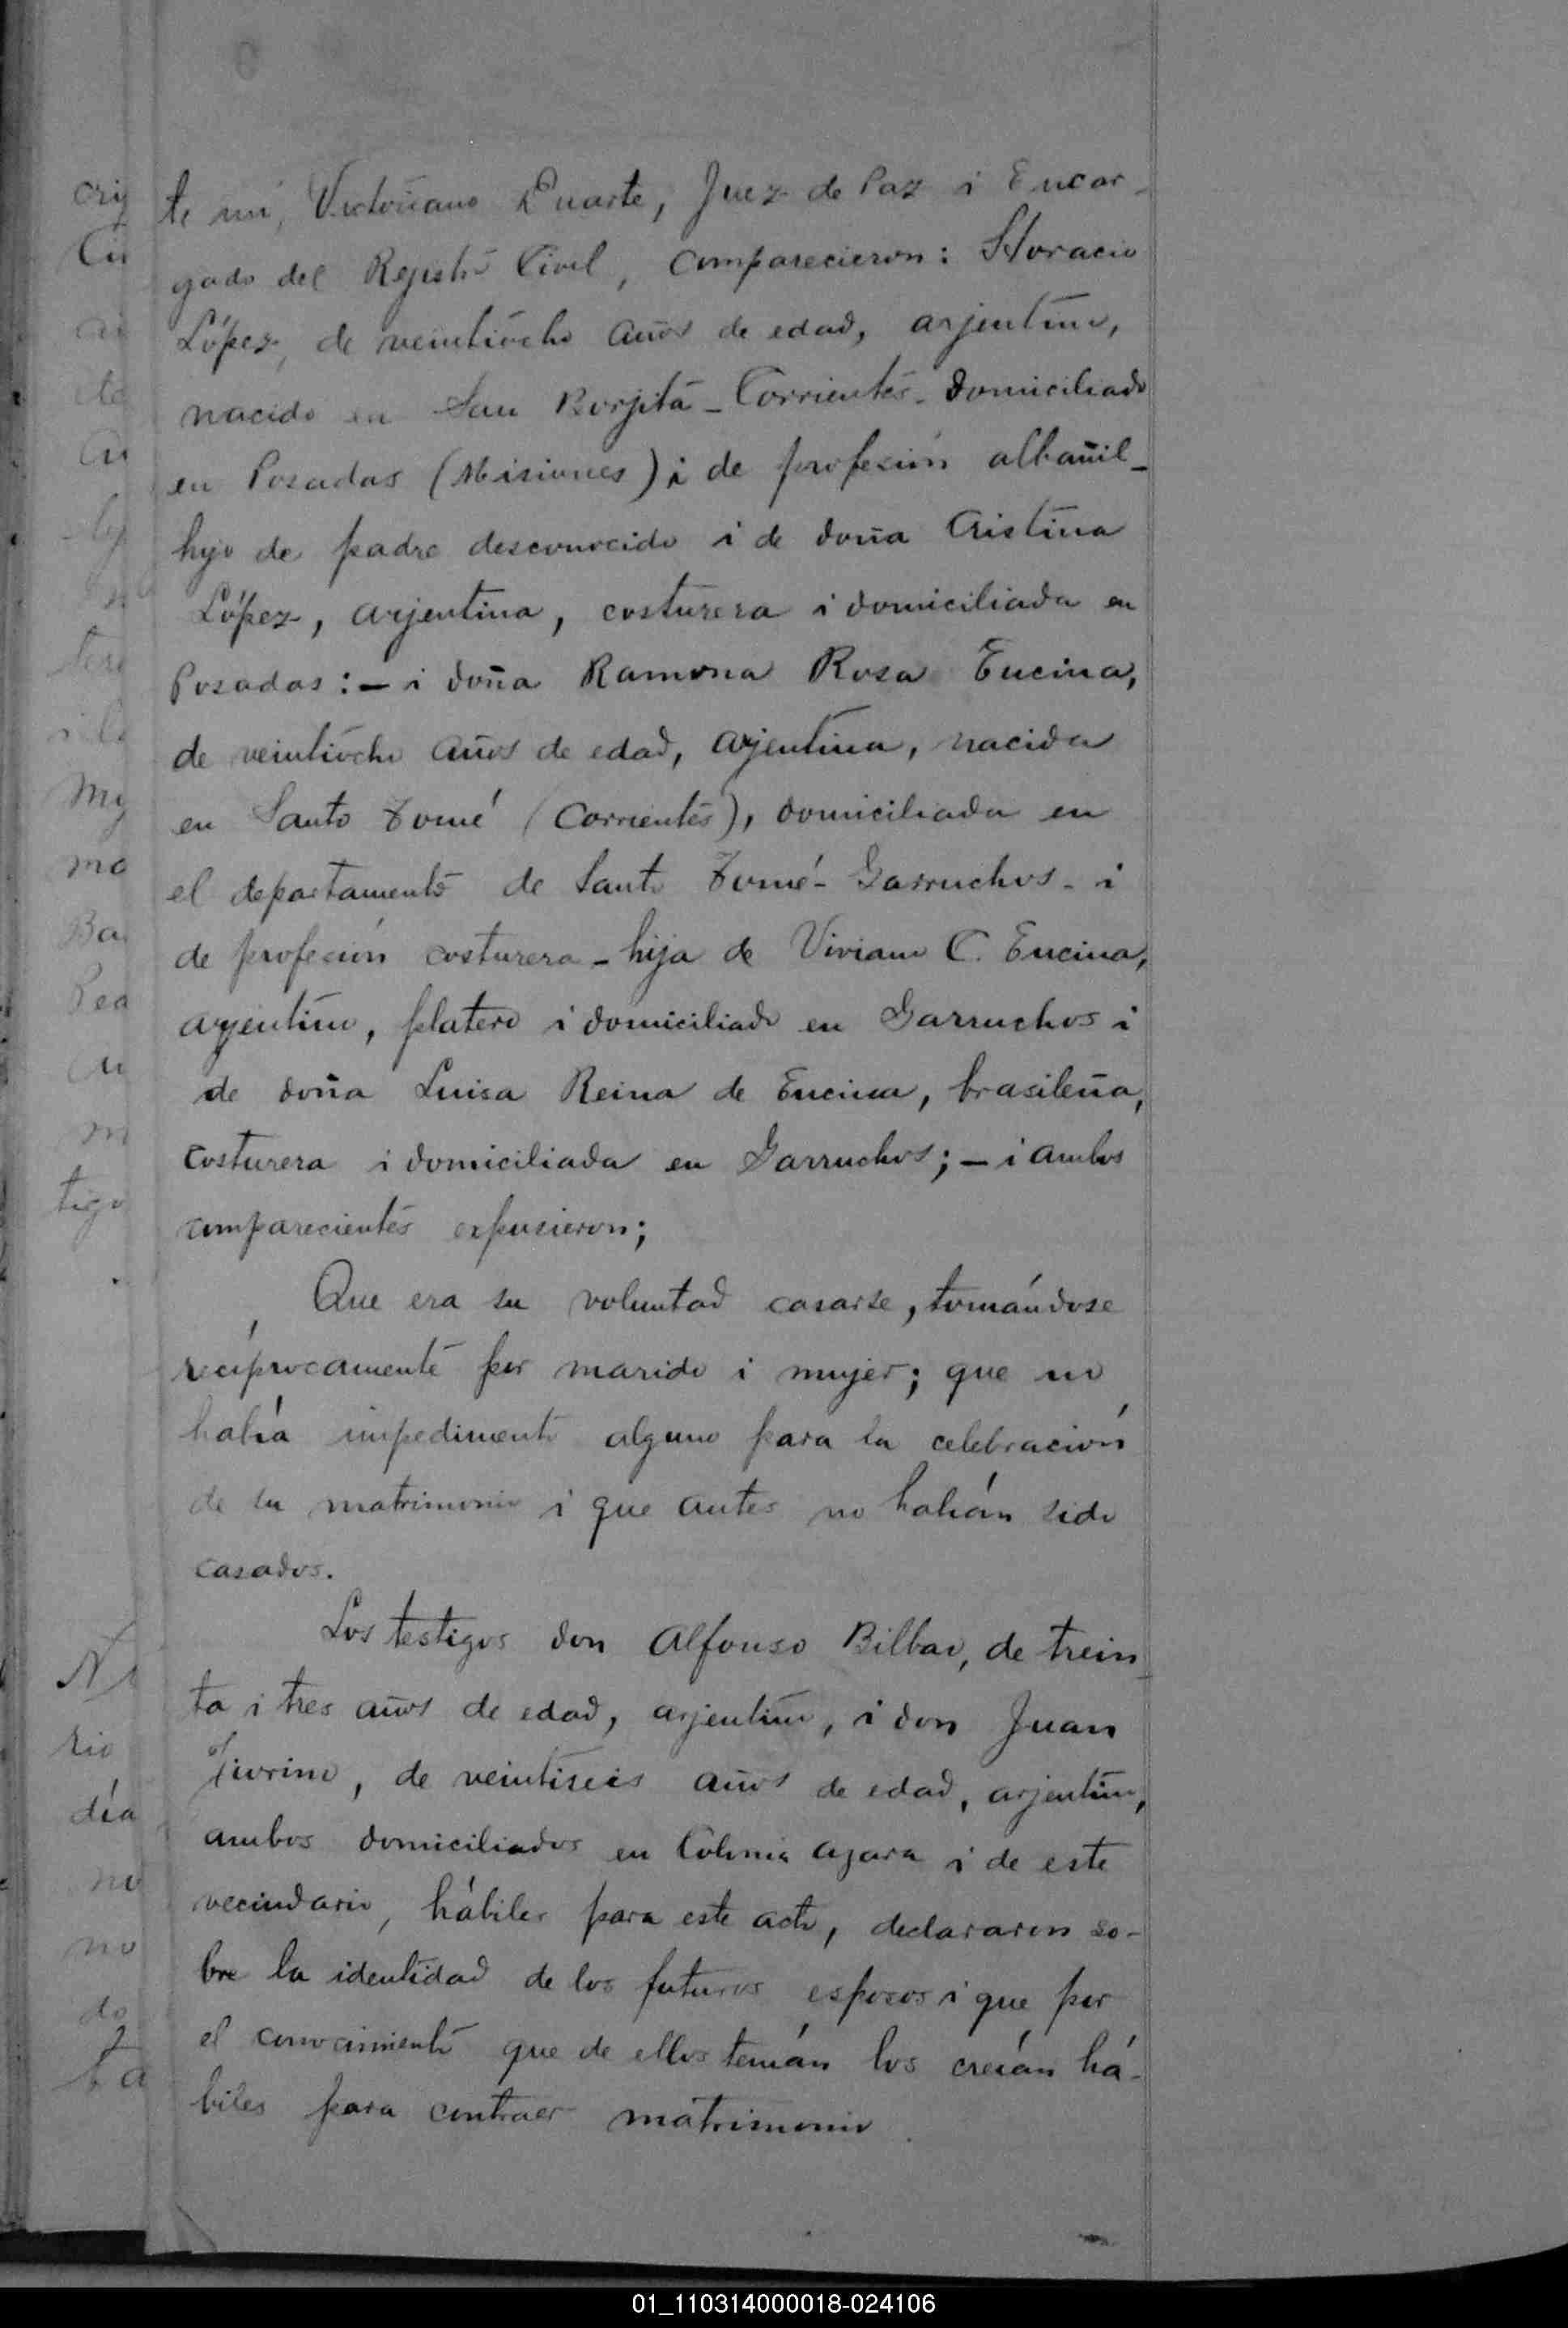 te mí, Victoriano Duarte, Juez de Paz i Encar-
gado del Rejistro Civil, comparecieron: Horacio
López, de veintiocho años de edad, arjentino,
nacido en San Borjita - Corrientes - domiciliado
en Posadas (Misiones) i de profesión albañil -
hijo de padre desconocido i de doña Cristina
López, arjentina, costurera i domiciliada en
Posadas: - i doña Ramona Rosa Encina,
de veintiocho años de edad, arjentina, nacida
en Santo Tomé (Corrientes), domiciliada en
el departamento de Santo Tomé - Garruchos - i
de profesión costurera - hija de Viviano C. Encina,
arjentino, platero i domiciliado en Garruchos i
de doña Luisa Reina de Encina, brasileña,
costurera i domiciliada en Garruchos; - i ambos
comparecientes expusieron;
Que era su voluntad casarse, tomándose
recíprocamente por marido i mujer; que no
había impedimento alguno para la celebración
de su matrimonio i que antes no habían sido
casados.
Los testigos don Alfonso Bilbao, de trein-
ta i tres años de edad, arjentino, i don Juan
Fiorino, de veintiseis años de edad, arjentino,
ambos domiciliados en Colonia Azara i de este
vecindario, hábiles para este acto, declararon so-
bre la identidad de los futuros esposos i que por
el conocimiento que de ellos tenían los creían há-
biles para contraer matrimonio.
01_110314000018-024106